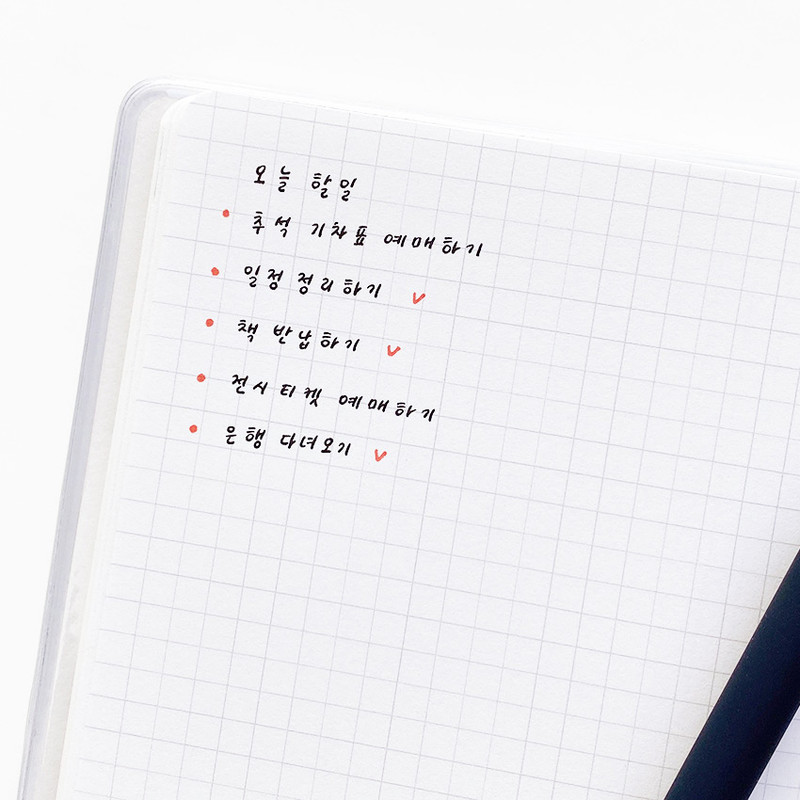 오늘 할일
• 추석 기차표 예매하기
• 일정 정리하기 ✓
• 책 반납하기 ✓
• 전시 티켓 예매하기
• 은행 다녀오기 ✓